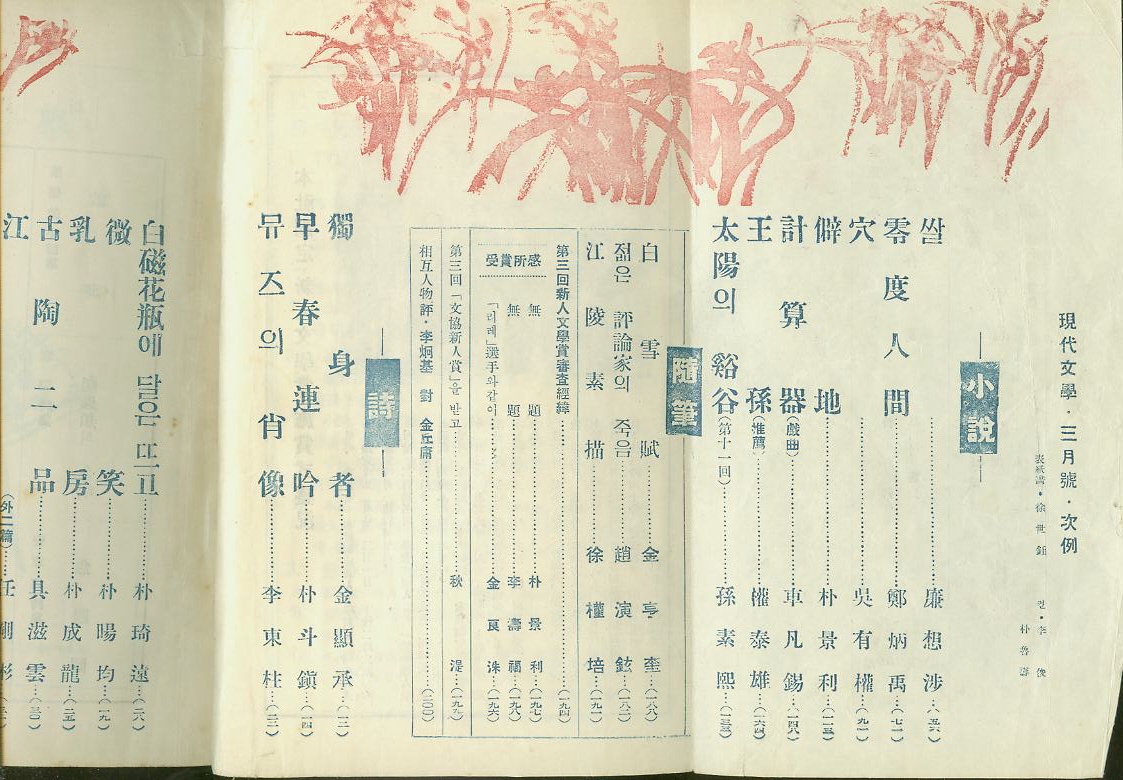 現代文學・三月號・次例
表紙畵・徐世鈺
컷・李俊
朴魯壽
小說
쌀……廉想涉…(五六)
零度人間……鄭炳禹…(七一)
穴……吳有權…(九一)
僻地……朴景利…(一一三)
計算器(戲曲)……車凡錫…(一四八)
王孫(推薦)……權泰雄…(一六四)
太陽의 谿谷(第十一回)……孫素熙…
隨筆
白雪賦……金亨奎…(一八八)
젊은 評論家의 죽음……趙演鉉…(一八二)
江陵素描……徐權培…(一九一)
第三回新人文學賞審査經緯……(一九四)
受賞所感
無題……朴景利…(一九七)
無題……李壽福…(一九八)
「리레」選手와같이……金良洙…(一九六)
第三回「文協新人賞」을 받고……秋湜…(一九九)
相互人物評・李炯基 對 金丘庸……(二〇〇)
詩
獨身者……金顯承…(一二)
早春連吟……朴斗鎭…(一四)
뮤즈의 肖像……李東柱…
白磁花瓶에 달은 뜨고……朴琦遠…
微笑……朴暘均…
乳房……朴成龍…
古陶二品……具滋雲…
江
(外二篇)…任剛彬